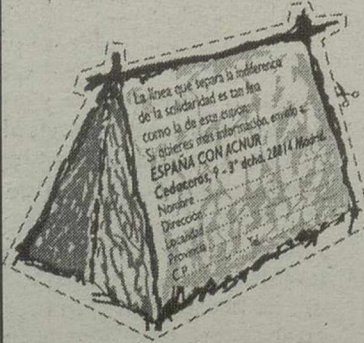 La línea que separa la indiferencia
de la solidaridad es tan fina
como la de este cupón.
Si quieres más información, envíalo a:
ESPAÑA CON ACNUR
Cedaceros, 9 - 3° dcha. 28014 Madrid.
Nombre
Dirección
Localidad
Provincia
C.P. Tel.